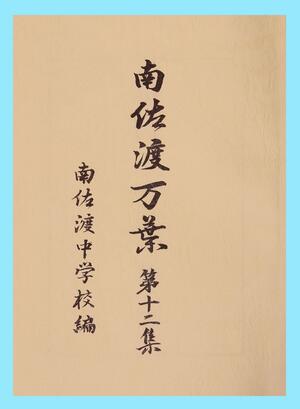 南佐渡万葉 第十二集
南佐渡中学校編